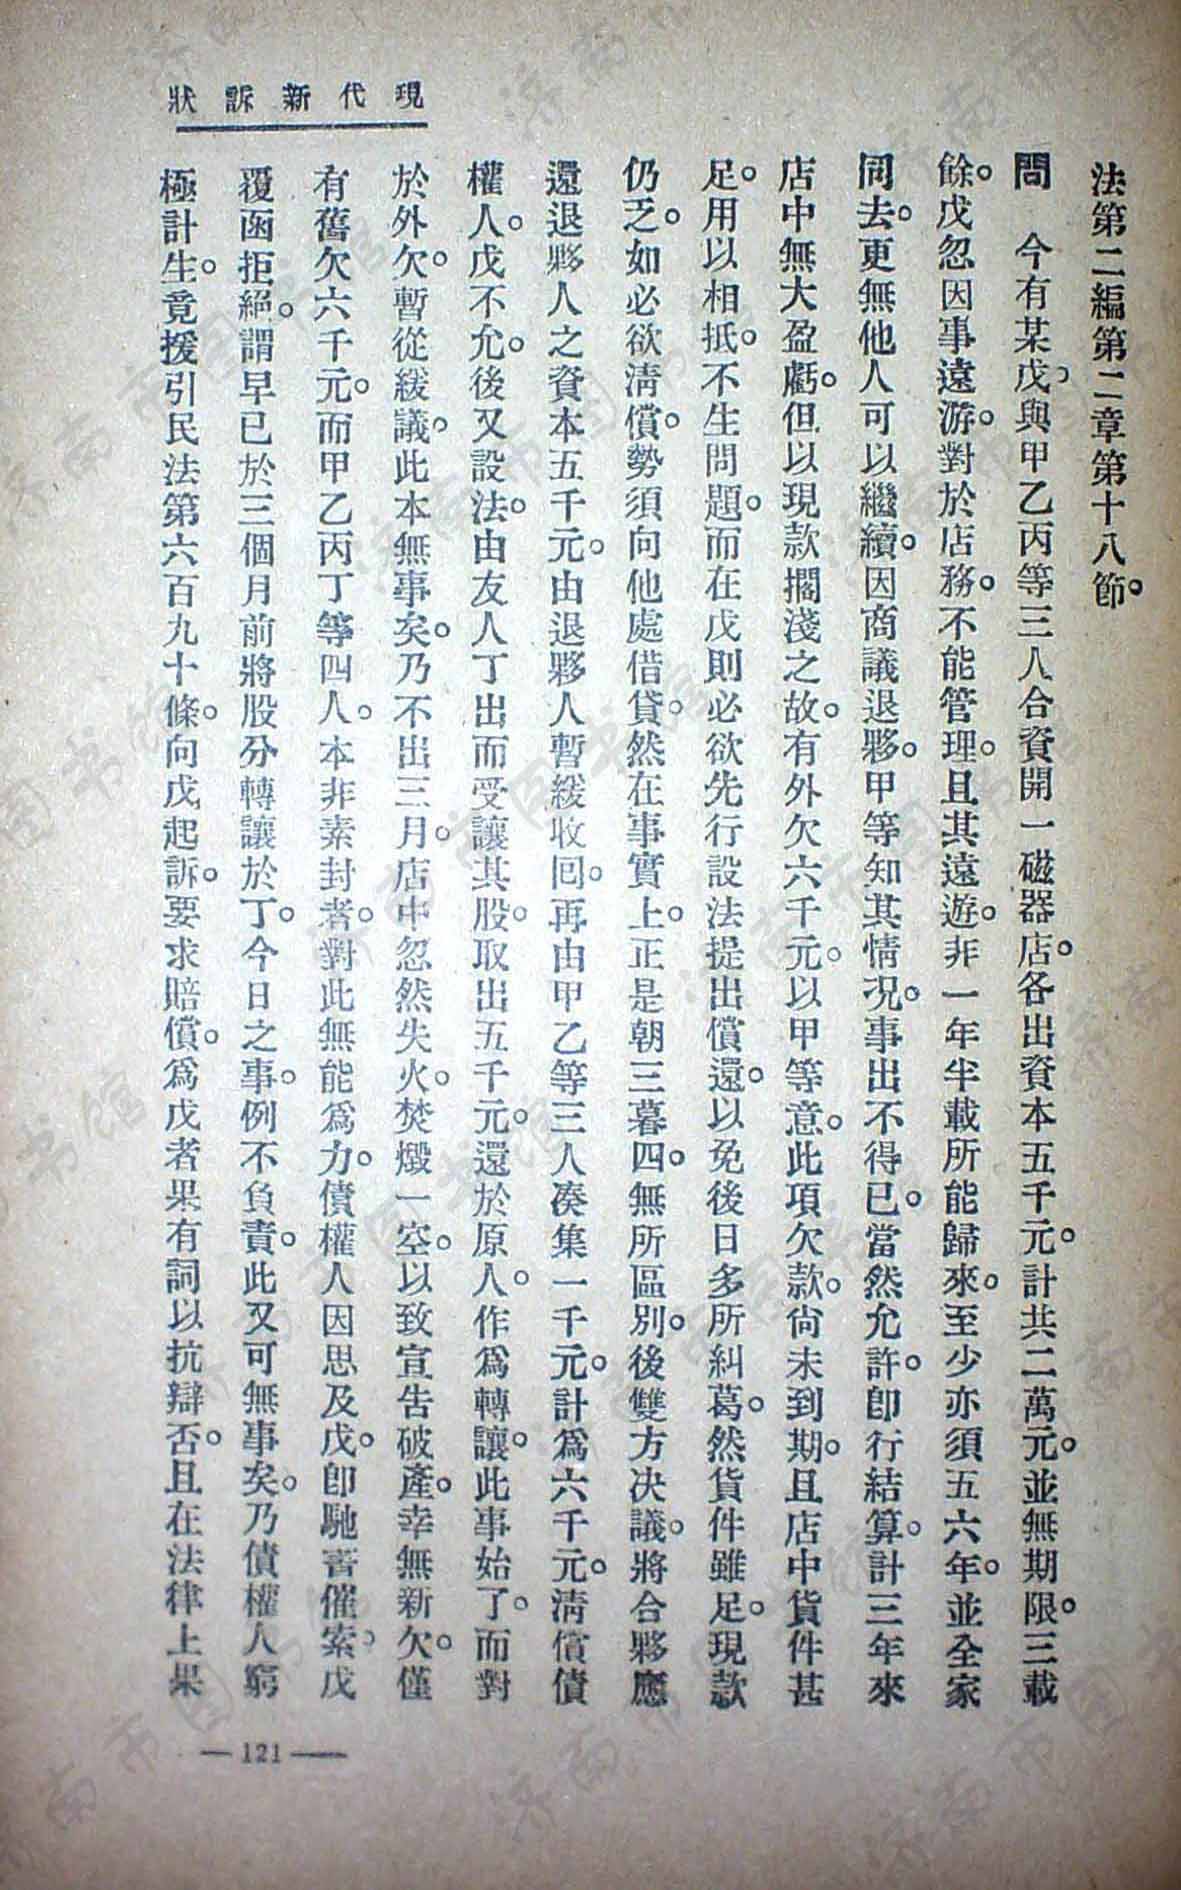 現代新訴狀
法第二編第二章第十八節。
問　今有某戊與甲乙丙等三人合資開一磁器店。各出資本五千元。計共二萬元。並無期限。三載
餘。戊忽因事遠游。對於店務。不能管理。且其遠遊。非一年半載所能歸來。至少亦須五六年。並全家
同去。更無他人可以繼續。因商議退夥。甲等知其情况。事出不得已。當然允許。卽行結算。計三年來
店中無大盈虧。但以現款擱淺之故。有外欠六千元。以甲等意。此項欠款。尙未到期。且店中貨件甚
足。用以相抵。不生問題。而在戊則必欲先行設法提出償還。以免後日多所糾葛。然貨件雖足。現款
仍乏。如必欲淸償。勢須向他處借貸。然在事實上。正是朝三暮四。無所區別。後雙方决議。將合夥應
還退夥人之資本五千元。由退夥人暫緩收回。再由甲乙等三人凑集一千元。計爲六千元。淸償債
權人。戊不允。後又設法。由友人丁出而受讓其股。取出五千元。還於原人。作爲轉讓。此事始了。而對
於外欠。暫從緩議。此本無事矣。乃不出三月。店中忽然失火。焚燬一空。以致宣告破產。幸無新欠。僅
有舊欠六千元。而甲乙丙丁等四人。本非素封者。對此無能爲力。債權人因思及戊。卽馳書催索。戊
覆函拒絕。謂早已於三個月前將股分轉讓於丁。今日之事。例不負責。此又可無事矣。乃債權人窮
極計生。竟援引民法第六百九十條。向戊起訴。要求賠償。爲戊者果有詞以抗辯否。且在法律上果
—121—
济南市图书馆